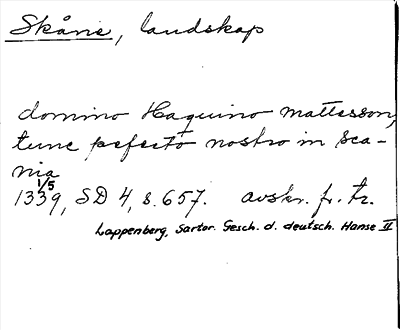 Skåne, landskap
domino Haquino mattesson,
tunc prefecto nostro in Sca-
nia
1/5
1339, SD 4, s. 657. avskr. fr. tr.
Lappenberg, Sartor. Gesch. d. deutsch. Hanse II